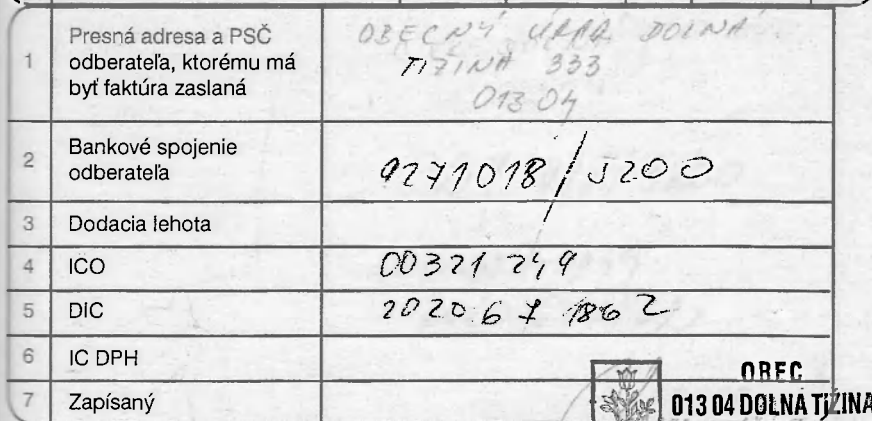 1 Presná adresa a PSČ odberateľa, ktorému má byť faktúra zaslaná
OBECNÝ ÚRAD DOLNÁ
TIŽINA 333
013 04
2 Bankové spojenie odberateľa
9271018/5200
3 Dodacia lehota
4 ICO
00321249
5 DIC
2020671862
6 IC DPH
7 Zapísaný
OBEC
013 04 DOLNÁ TIŽINA